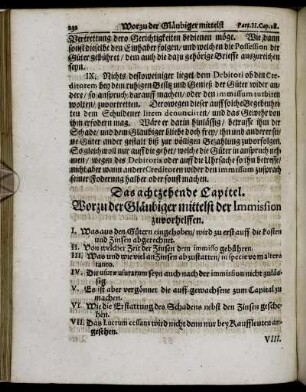 232 Worzu der Gläubiger mittelst Part. II. Cap. 18.
Vertrettung dero Gerichtigkeiten bedienen möge. Wie dann
sonst dieselbe den Einhaber folgen, und welchen die Possession der
Güter gebühret / dem auch die dazu gehörige Brieffe auszureichen
seyn.
IX. Nichts destoweiniger lieget dem Debitori ob den Cre-
ditorem bey dem ruhigen Besitz und Genieß der Güter wider an-
dere / so anspruch darauff machen / oder den immissum betrüben
wolten / zuvertretten. Derowegen dieser auff solche Begebenhei-
ten dem Schuldener litem denunciiren / und das Gewehr von
ihm erfodern mag. Wäre er darin säumig / betrifft ihm der
Schade / und dem Gläubiger bliebe doch frey / ihn und andere sei-
ne Güter ander gestalt biß zur völligen Bezahlung zuverfolgen.
So gleichwol nur auff die gehet / welche die Güter in anspruch neh-
men / wegen des Debitoris oder auff die Ursache so ihn betreffe /
nicht aber wann andere Creditores wider den immissum zusprach
seiner Foderung halber oder sonst machen.
Das achtzehende Capitel.
Worzu der Gläubiger mittelst der Immision
zuvorhelffen.
I. Was aus den Gütern eingehoben / wird zu erst auff die Kosten
und Zinsen abgerechnet.
II. Von welcher Zeit der Zinsen dem immisso gebühren.
III. Was und wie viel an Zinsen abzustatten / in specie vom altero
tanto.
IV. Die usuræ usurarum seyn auch nach der immission nicht zuläs-
sig.
V. Es ist aber vergönnet die auffgewachsene zum Capital zu
machen.
VI. Wie die Erstattung des Schadens nebst den Zinsen gesche-
hen.
VII. Das Lucrum cessans wird nicht denn nur bey Kauffleuten an-
gesehen.
VIII.